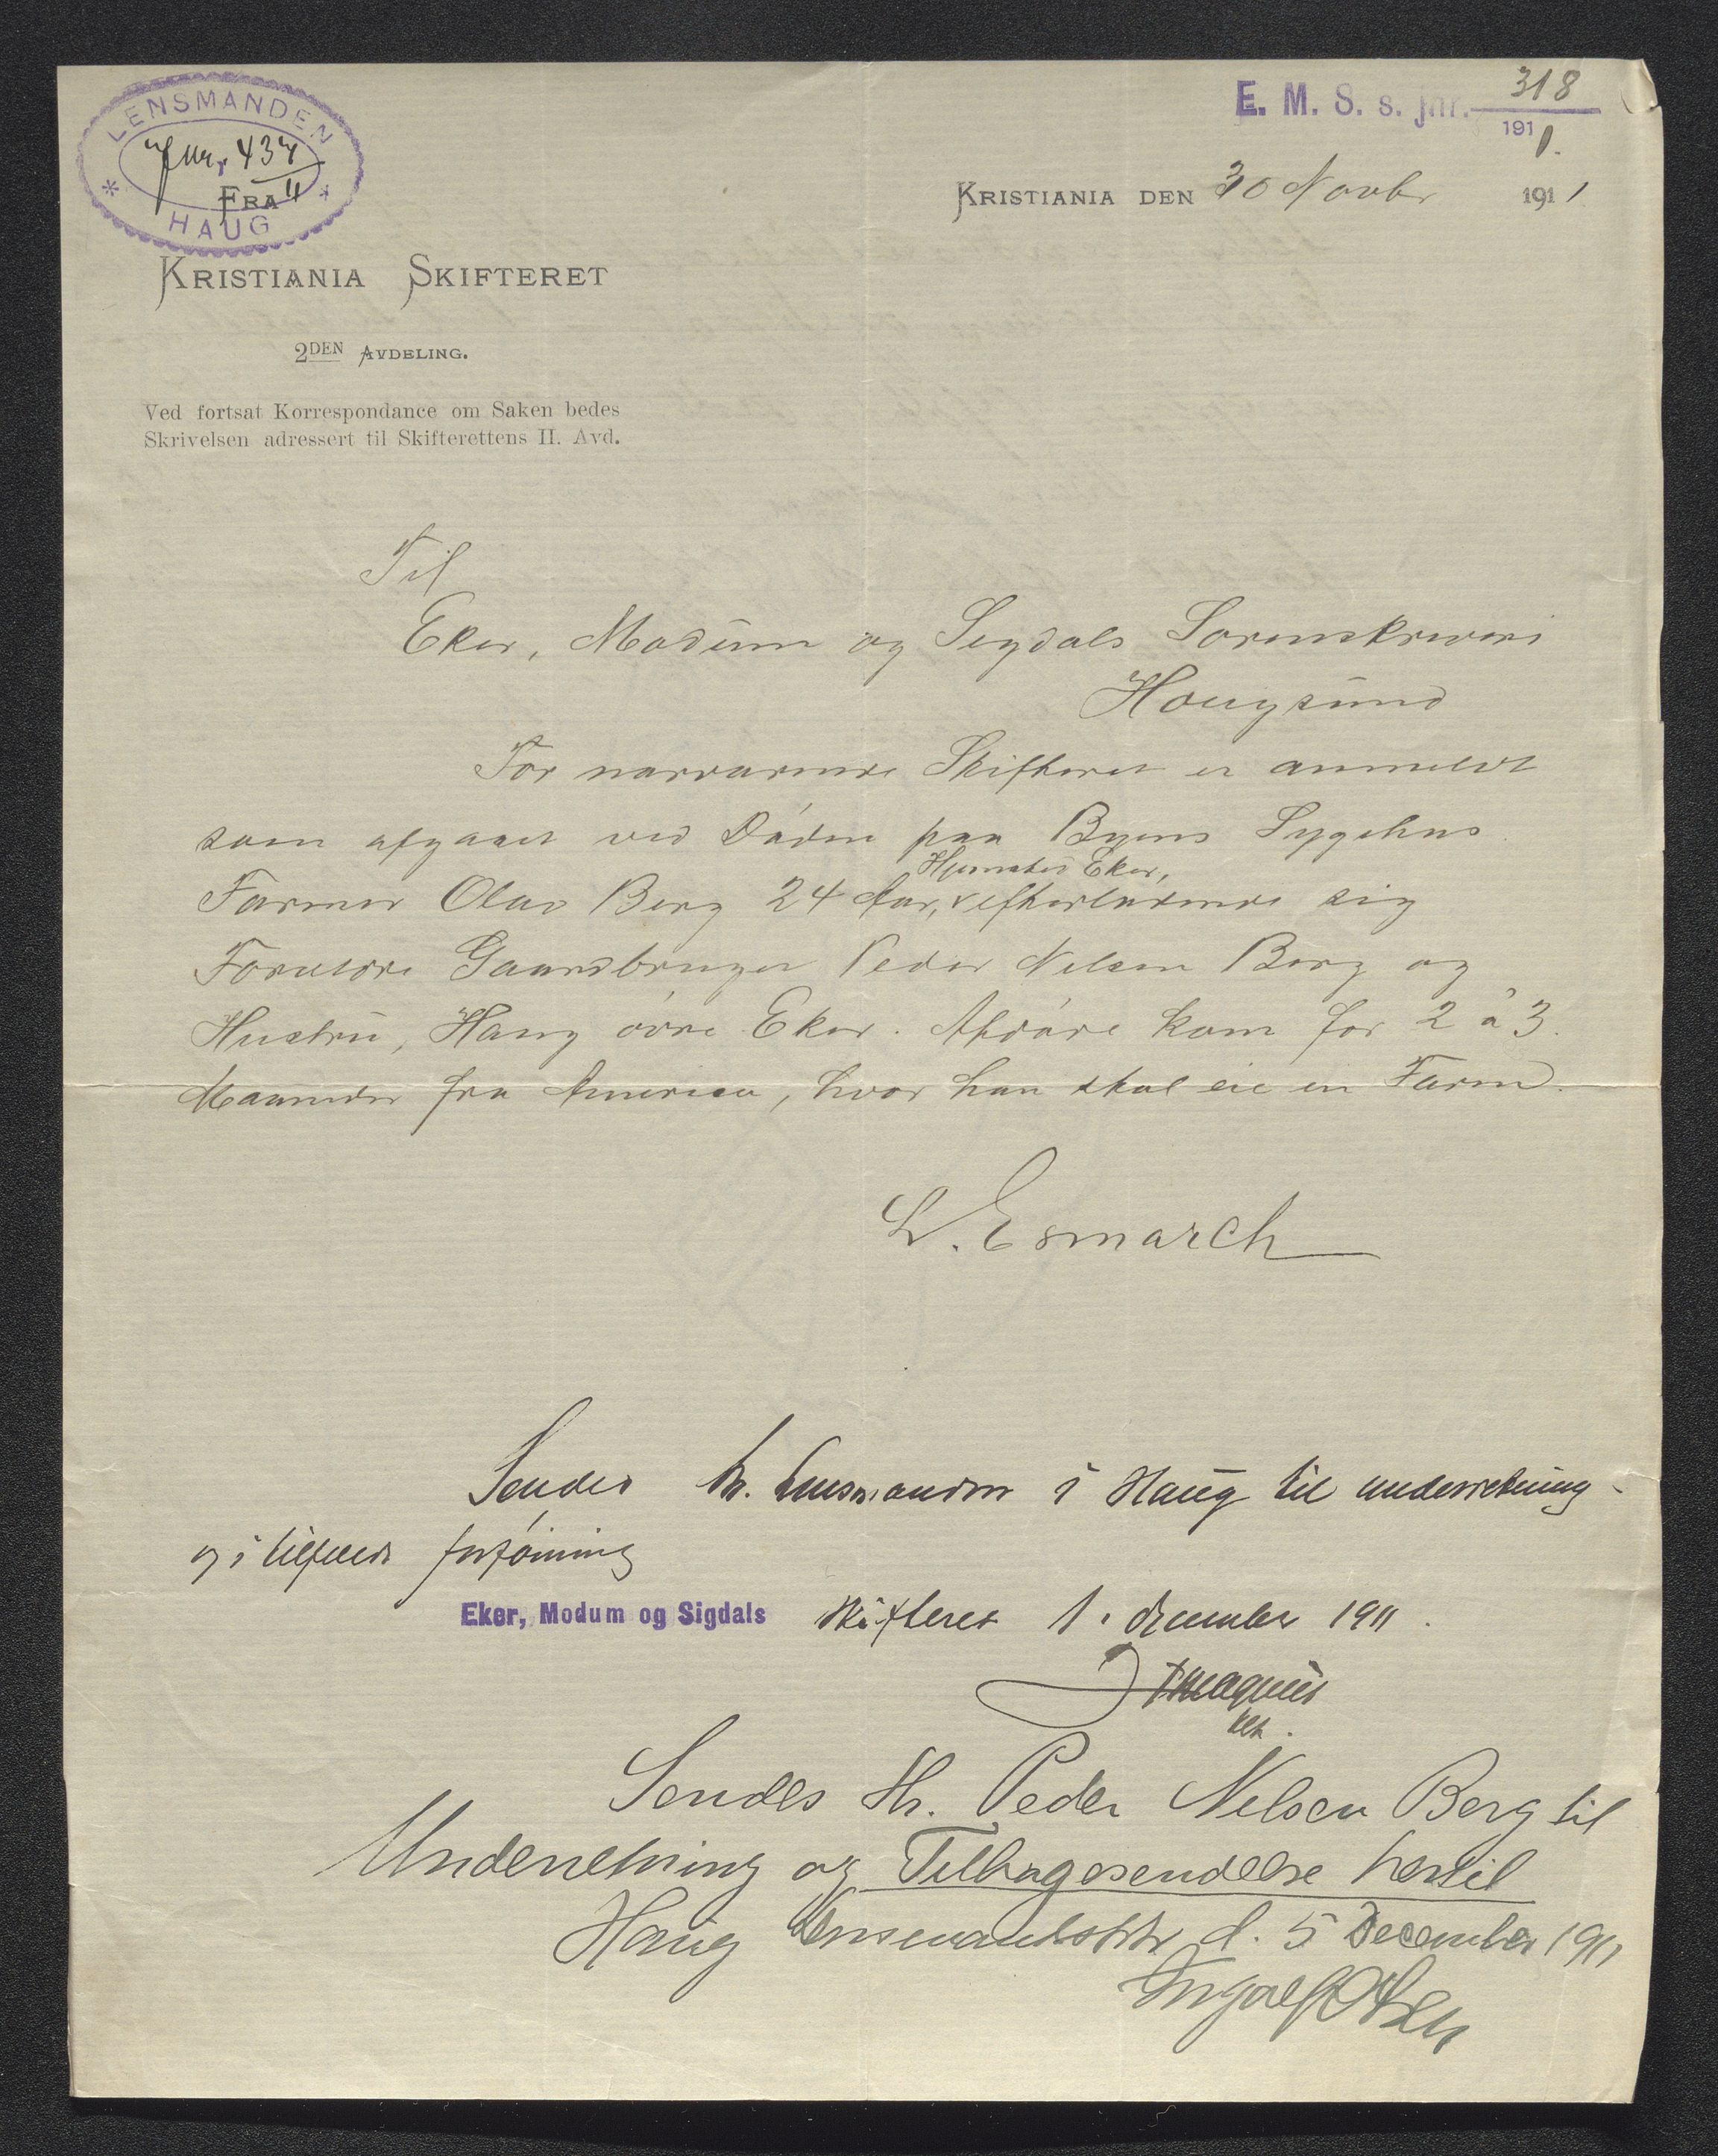 LENSMANDEN
Jnr. 434
11
HAUG
E. M. S. s. jnr. 318
1911.
FRA
KRISTIANIA DEN 30 Novbr 1911
KRISTIANIA SKIFTERET
2DEN AVDELING.
Ved fortsat Korrespondance om Saken bedes
Skrivelsen adressert til Skifterettens II. Avd.
Til
Eker, Modum og Sigdals Sorenskriveri
Hougsund
For nærværende Skifteret er anmeldt
som afgaaet ved Døden paa Byens Sygehus
Hjemsted Eker,
Farmer Olav Berg 24 Aar, v efterladende sig
Forældre Gaardbruger Peder Nelsen Berg og
Hustru, Haug øvre Eker. Afdøde kom for 2 à 3
Maaneder fra America, hvor han skal eie en Farm.
L. Esmarch
Sendes hr. lensmanden i Haug til underretning
og i tilfælde forføining
Eker, Modum og Sigdals skifteret 1. december 1911.
Sendes Hr. Peder Nelsen Berg til
Underretning og Tilbagesendelse hertil
Haug Lensmandsktr d. 5 December 1911